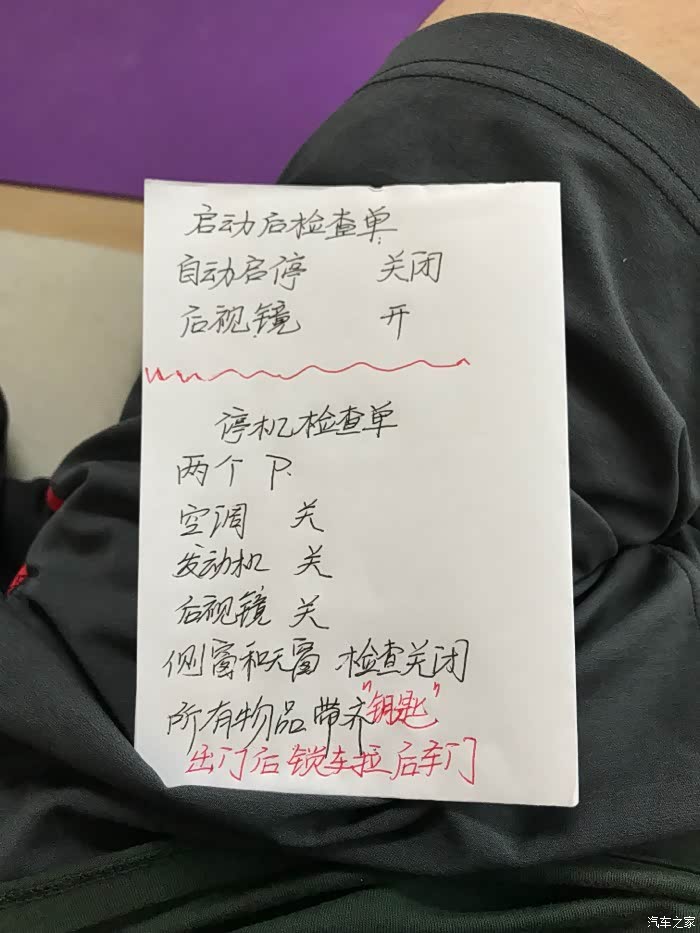 启动后检查单
自动启停 关闭
后视镜 开
停机检查单
两个 P.
空调 关
发动机 关
后视镜 关
侧窗和天窗 检查关闭
所有物品带齐"钥匙"
出门后锁车拉后车门
汽车之家